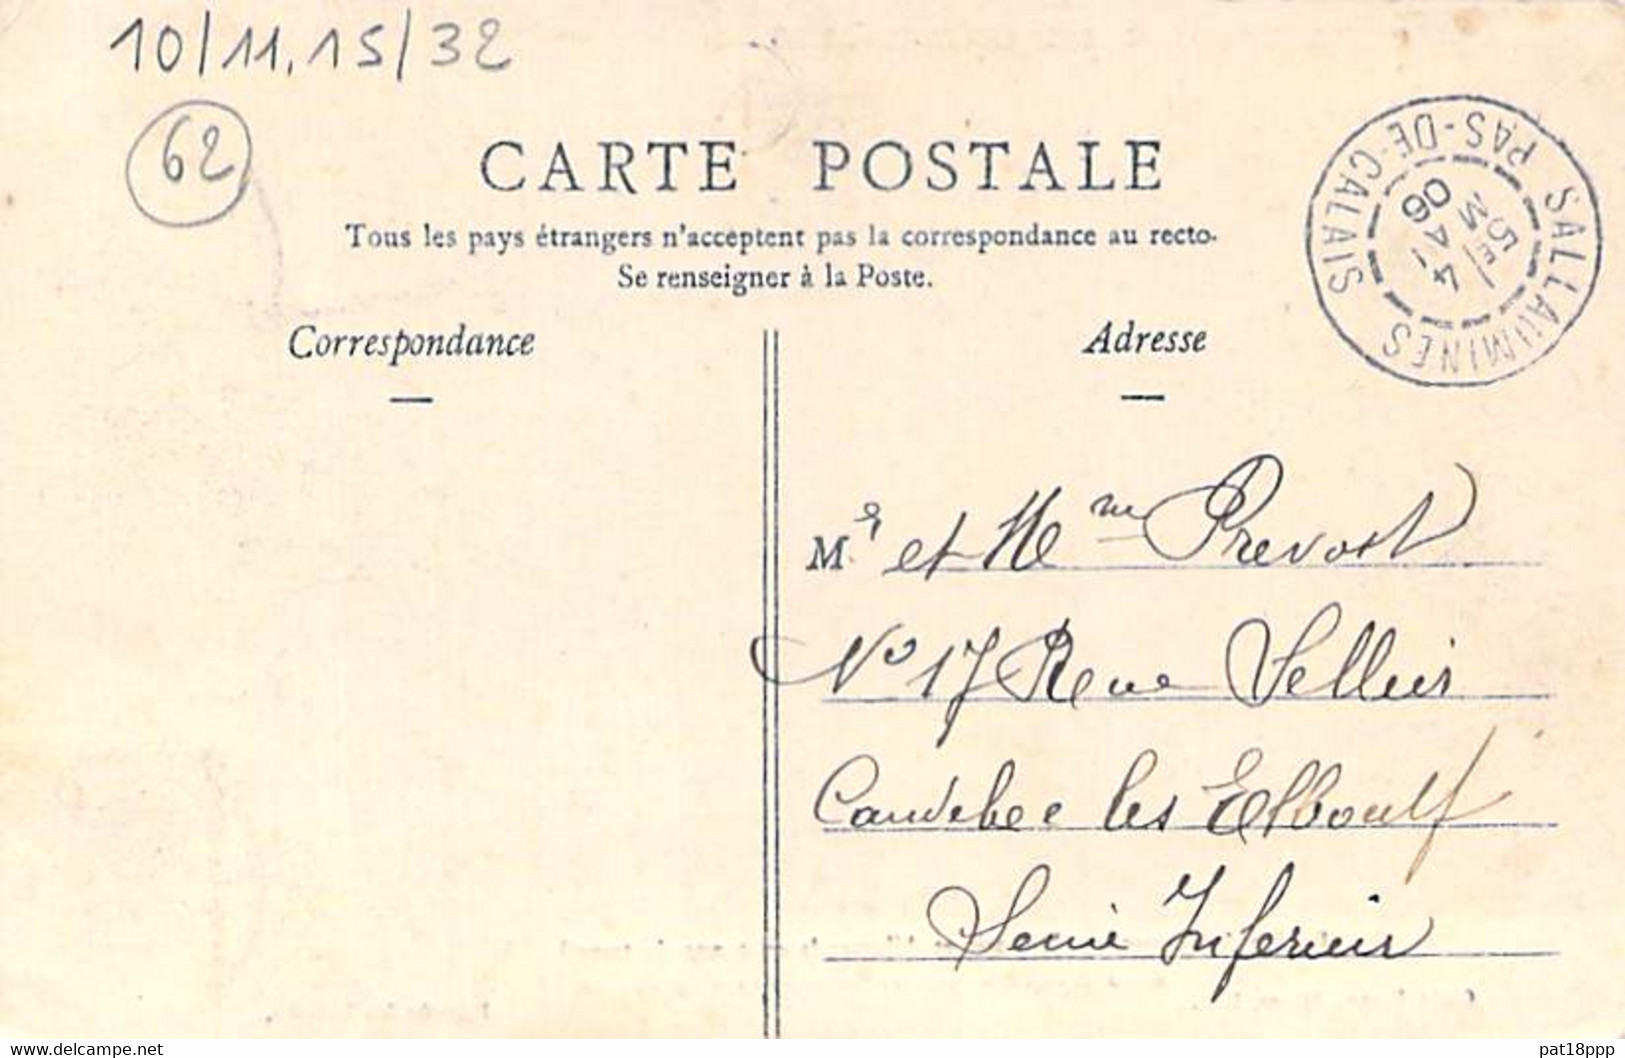 10/11.15/32
62
CARTE POSTALE
Tous les pays étrangers n'acceptent pas la correspondance au recto.
Se renseigner à la Poste.
Correspondance
Adresse
SALLAUMINES
PAS-DE-CALAIS
5E
4
06
Mr et Mme Prevost
No 17 Rue
Caudebec les Elboeuf
Seine Inferieur
delcampe.net
pat18ppp